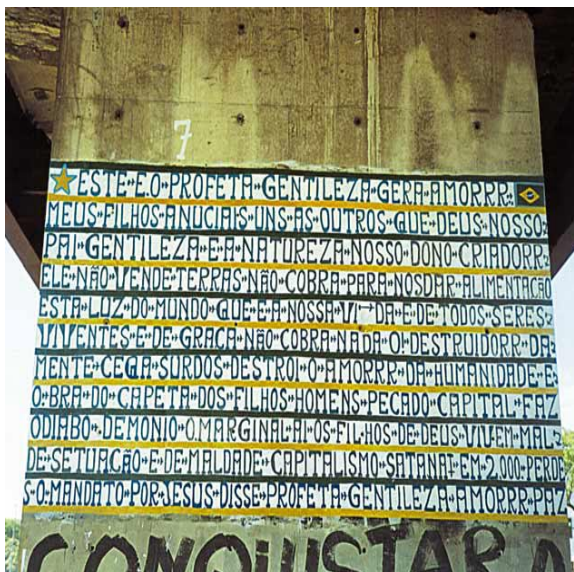 7
ESTE E.O PROFETA GENTILEZA GERA AMORRR
MEUS FILHOS ANUCIAIS UNS AS OUTROS QUE DEUS NOSSO
PAI GENTILEZA E A NATUREZA NOSSO DONO CRIADORR
ELE NÃO VENDE TERRAS NÃO COBRA PARA NOSDAR ALIMENTAÇÃO
ESTA LUZ DO MUNDO QUE E A NOSSA VI DA E DE TODOS SERES
VIVENTES E DE GRAÇA NÃO COBRA NADA O DESTRUIDORR DA
MENTE CEGA SURDOS DESTROI O AMORRR DA HUMANIDADE E
OBRA DO CAPETA DOS FILHOS HOMENS PECADO CAPITAL FAZ
ODIABO DEMONIO OMARGINAL AI OS FILHOS DE DEUS VIVEM MAL
DE SETUAÇÃO E DE MALDADE CAPITALISMO SATANAI EM 2.000 PERDE
S O MANDATO POR JESUS DISSE PROFETA GENTILEZA AMORRR PAZ
CONQUISTAR A